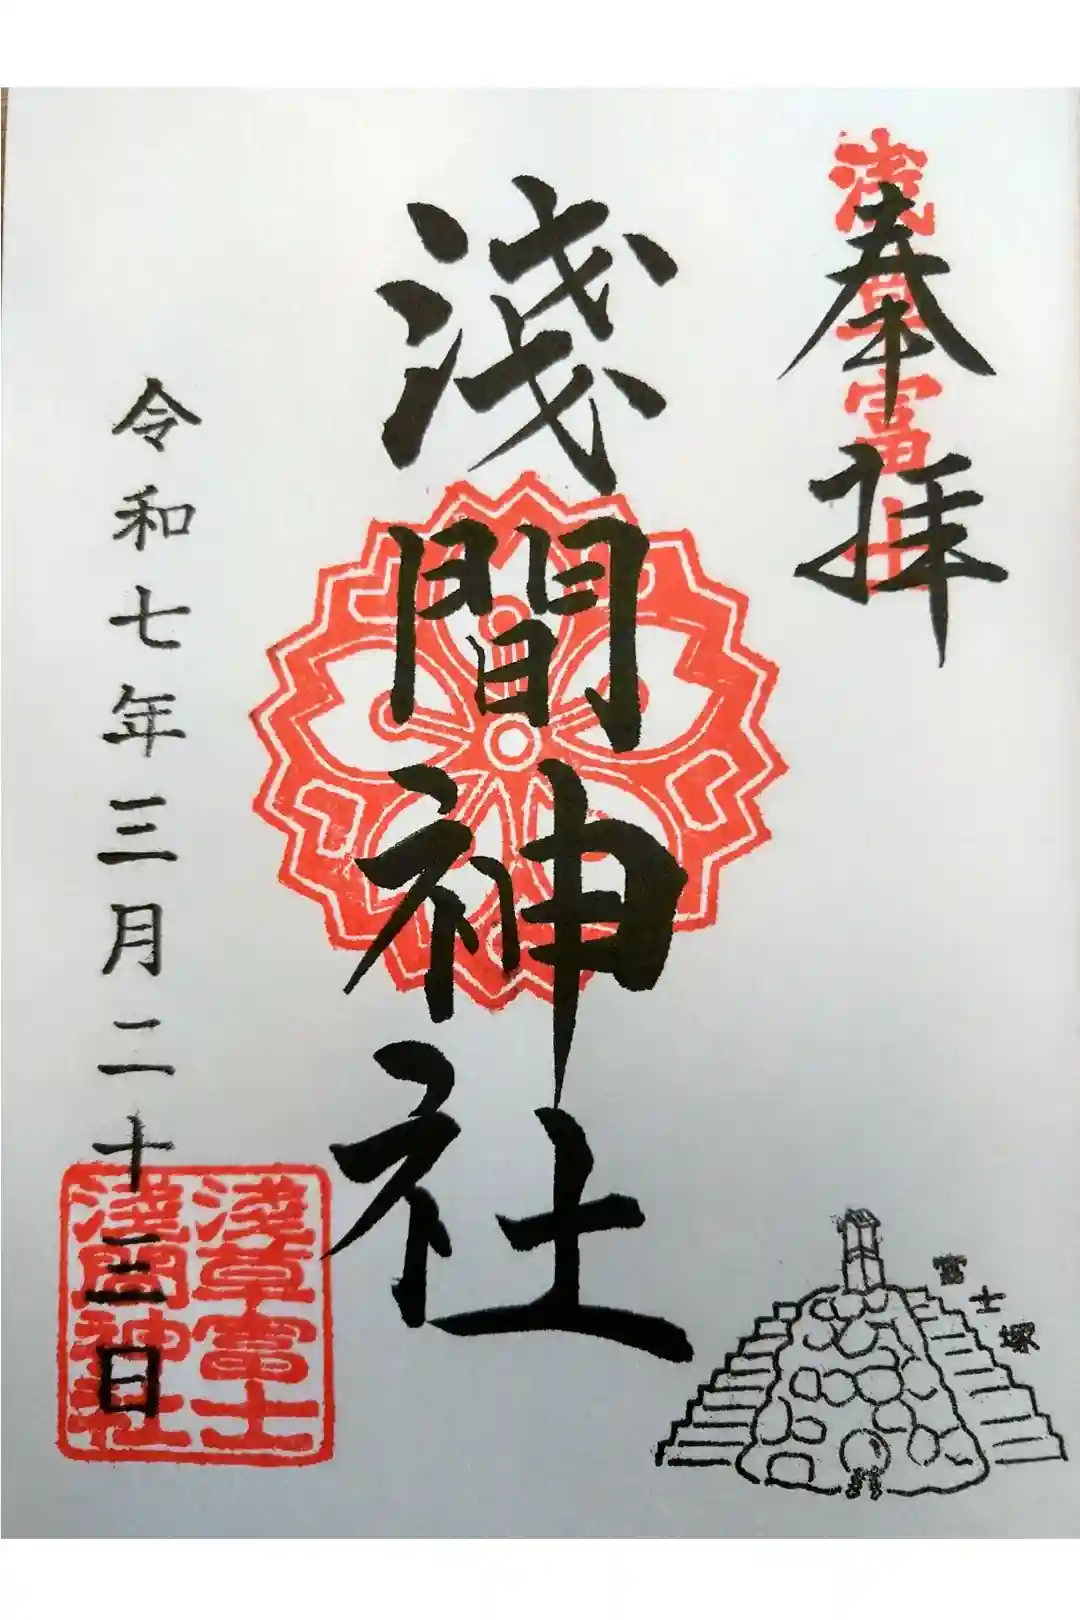 奉拝
浅草富士
淺間神社
令和七年三月二十三日
淺草富士
淺間神社
富士塚